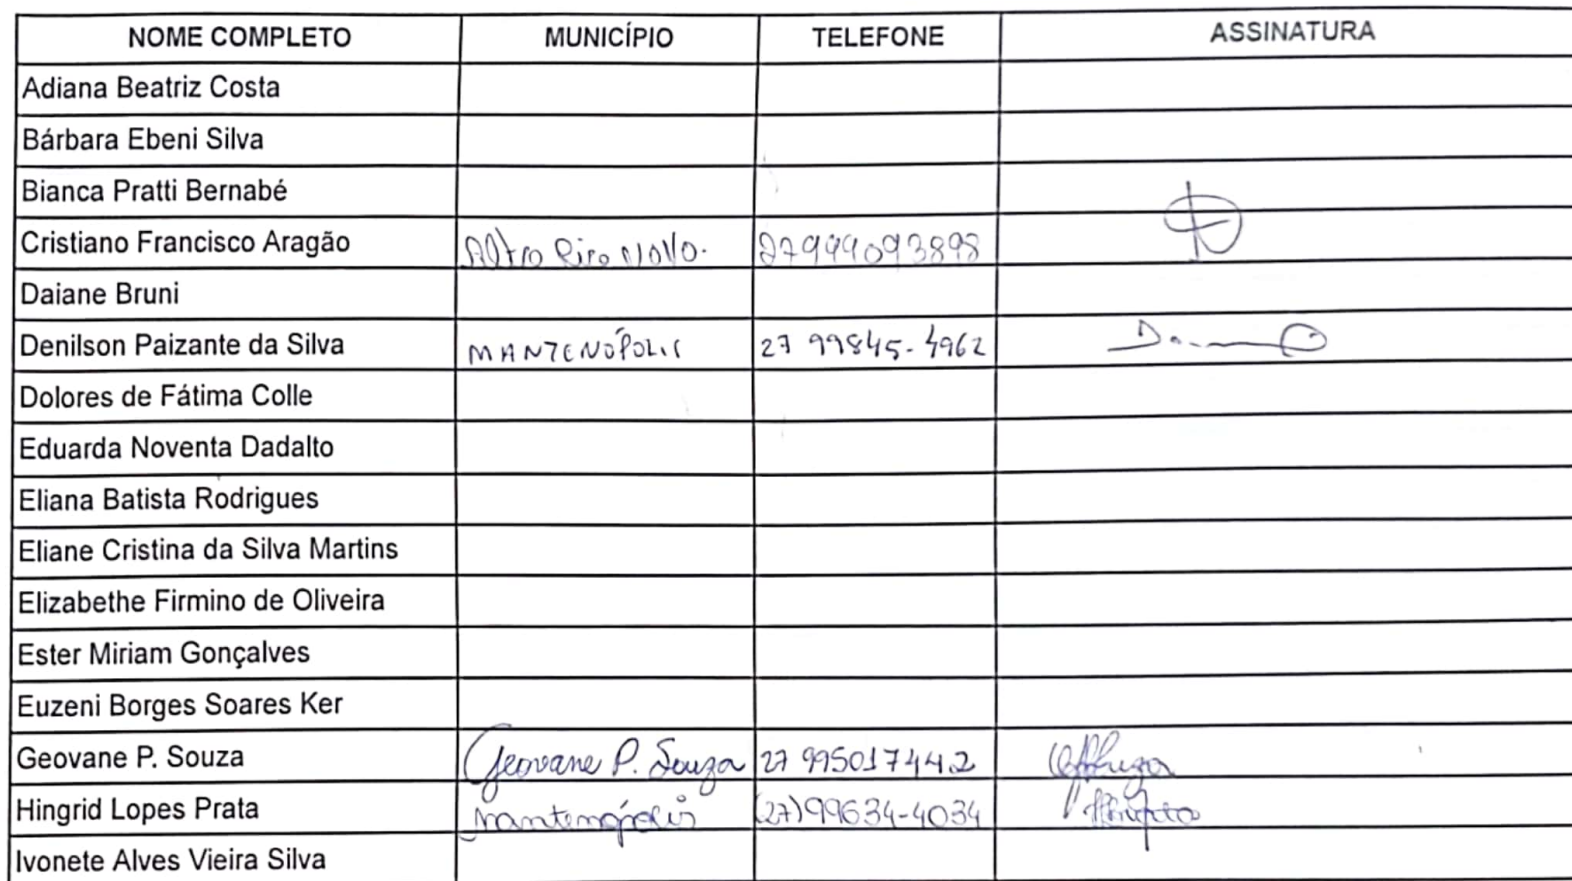 NOME COMPLETO MUNICÍPIO TELEFONE ASSINATURA
Adiana Beatriz Costa
Bárbara Ebeni Silva
Bianca Pratti Bernabé
Cristiano Francisco Aragão Altro Rio Novo. 27999093898
Daiane Bruni
Denilson Paizante da Silva MANTENÓPOLIS 27 99845-4962
Dolores de Fátima Colle
Eduarda Noventa Dadalto
Eliana Batista Rodrigues
Eliane Cristina da Silva Martins
Elizabethe Firmino de Oliveira
Ester Miriam Gonçalves
Euzeni Borges Soares Ker
Geovane P. Souza Geovane P. Souza 27 995017442
Hingrid Lopes Prata Mantenópolis (27)99634-4034
Ivonete Alves Vieira Silva